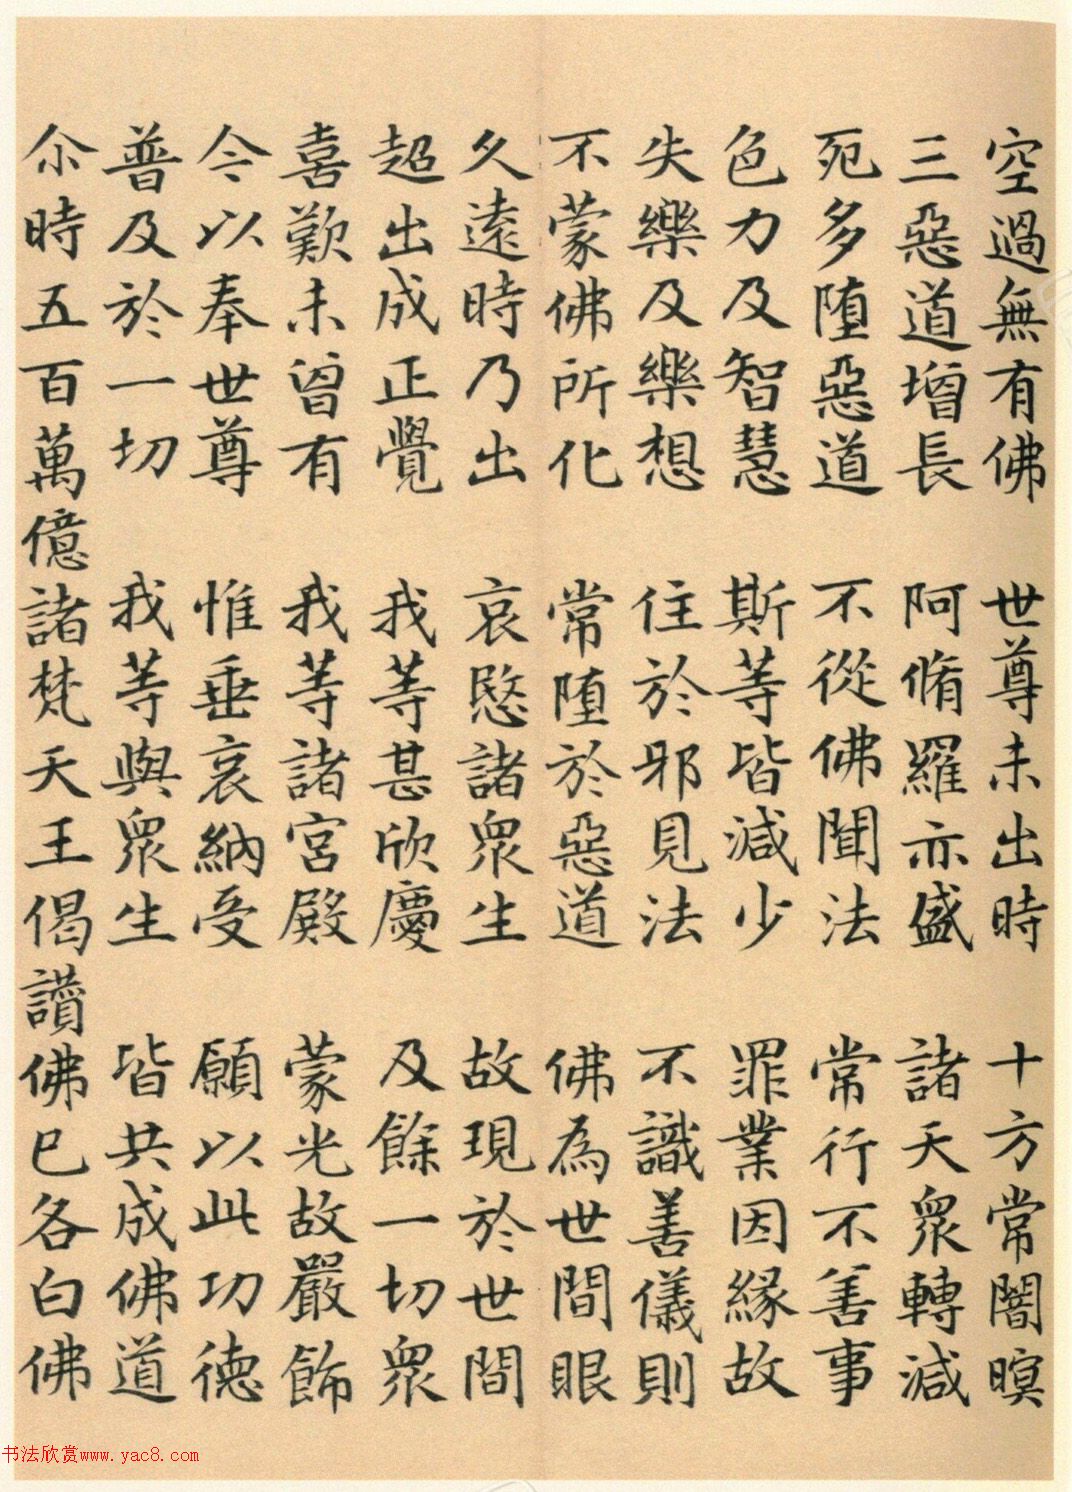 空過無有佛 世尊未出時 十方常闇暝
三惡道增長 阿脩羅亦盛 諸天眾轉減
死多堕惡道 不從佛聞法 常行不善事
色力及智慧 斯等皆減少 罪業因緣故
失樂及樂想 住於邪見法 不識善儀則
不蒙佛所化 常堕於惡道 佛為世間眼
久遠時乃出 哀愍諸眾生 故現於世間
超出成正覺 我等甚欣慶 及餘一切眾
喜歎未曾有 我等諸宮殿 蒙光故嚴飾
今以奉世尊 惟垂哀納受 願以此功德
普及於一切 我等與眾生 皆共成佛道
尒時五百萬億諸梵天王偈讚佛已各白佛
书法欣赏www.yac8.com